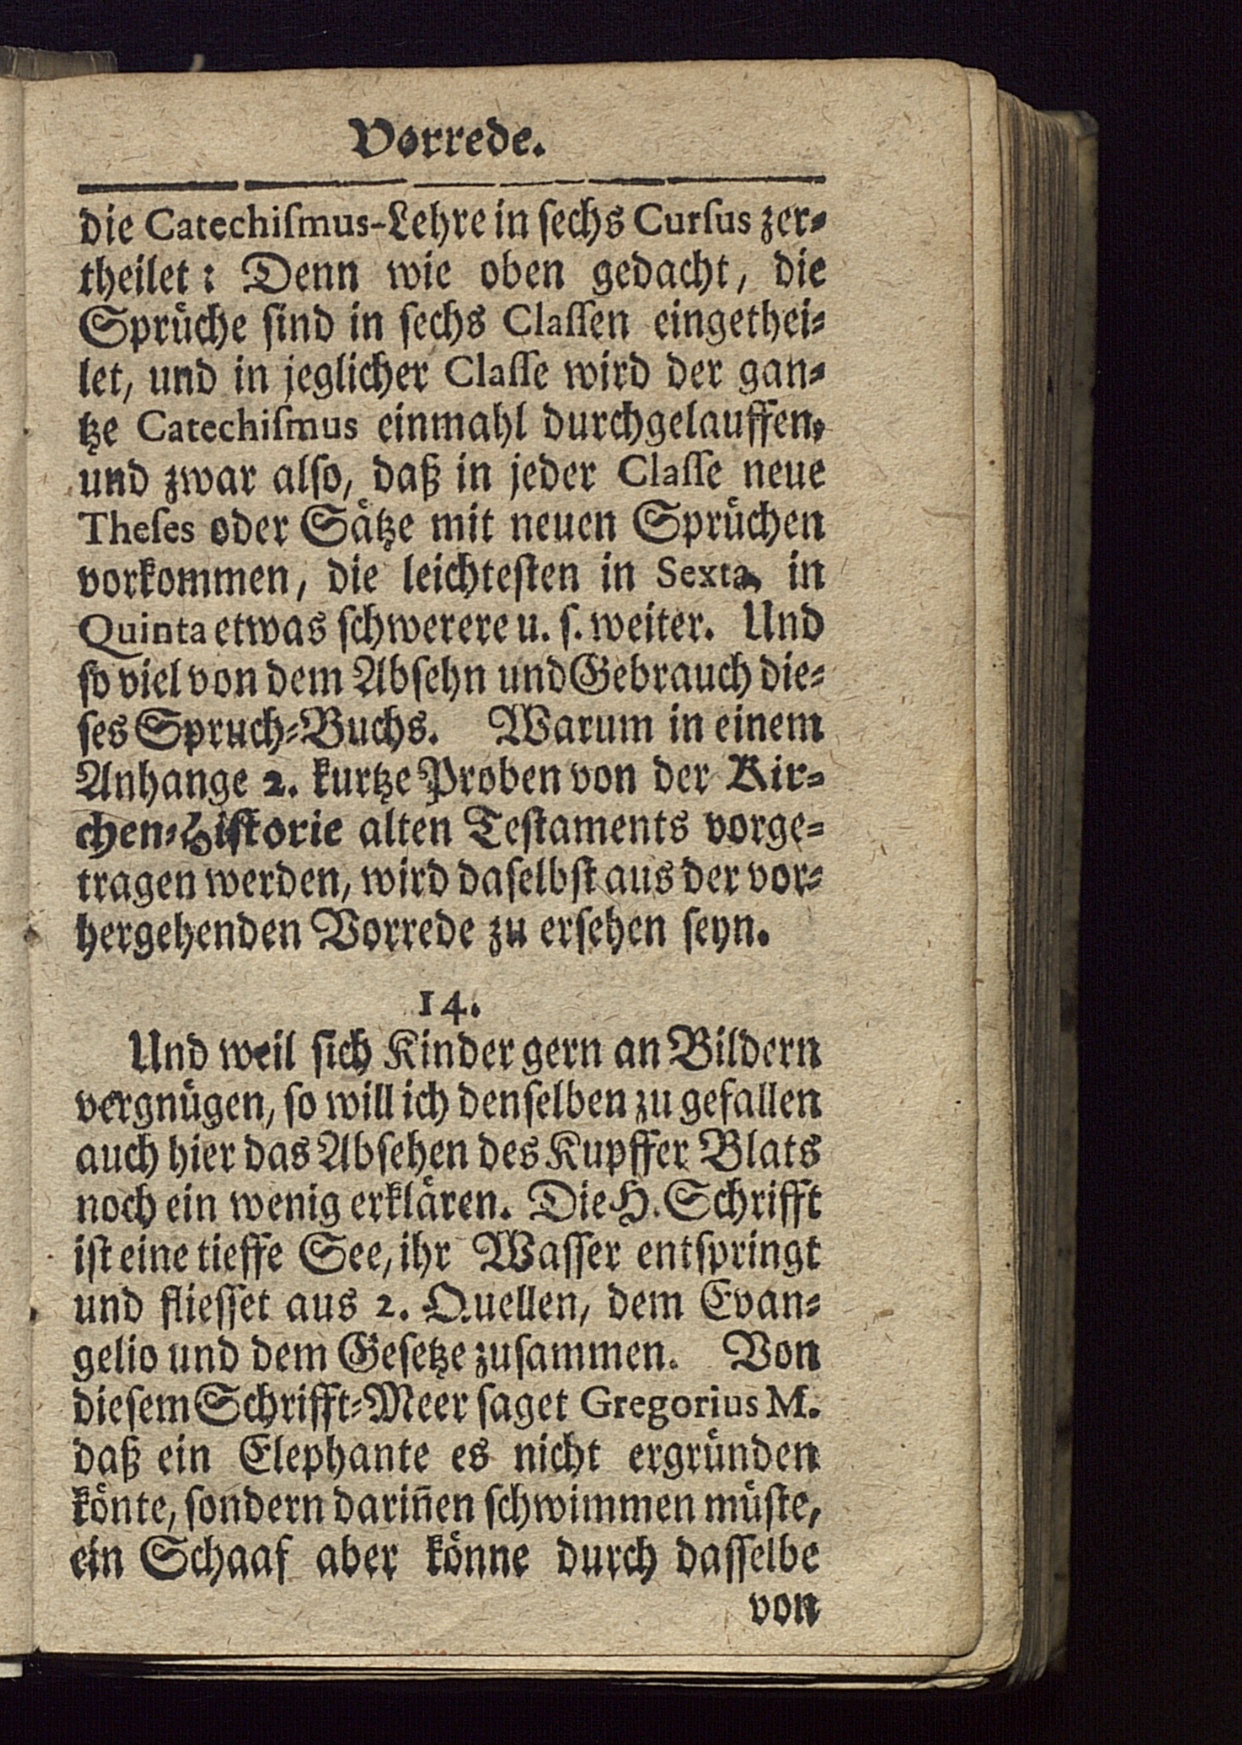 Vorrede.
die Catechiſmus-Lehre in ſechs Curſus zer⸗
theilet: Denn wie oben gedacht, die
Sprüche ſind in ſechs Claſſen eingethei⸗
let, und in jeglicher Claſſe wird der gan⸗
tze Catechiſmus einmahl durchgelauffen,
und zwar alſo, daß in jeder Claſſe neue
Theſes oder Sätze mit neuen Sprüchen
vorkommen, die leichteſten in Sexta, in
Quinta etwas ſchwerere u. ſ. weiter. Und
ſo viel von dem Abſehn und Gebrauch die⸗
ſes Spruch⸗Buchs. Warum in einem
Anhange 2. kurtze Proben von der Kir⸗
chen⸗Hiſtorie alten Teſtaments vorge⸗
tragen werden, wird daſelbſt aus der vor⸗
hergehenden Vorrede zu erſehen ſeyn.
14.
Und weil ſich Kinder gern an Bildern
vergnügen, ſo will ich denſelben zu gefallen
auch hier das Abſehen des Kupffer Blats
noch ein wenig erklären. Die H. Schrifft
iſt eine tieffe See, ihr Waſſer entſpringt
und flieſſet aus 2. Quellen, dem Evan⸗
gelio und dem Geſetze zuſammen. Von
dieſem Schrifft⸗Meer ſaget Gregorius M.
daß ein Elephante es nicht ergründen
könte, ſondern dariñen ſchwimmen müſte,
ein Schaaf aber könne durch daſſelbe
von